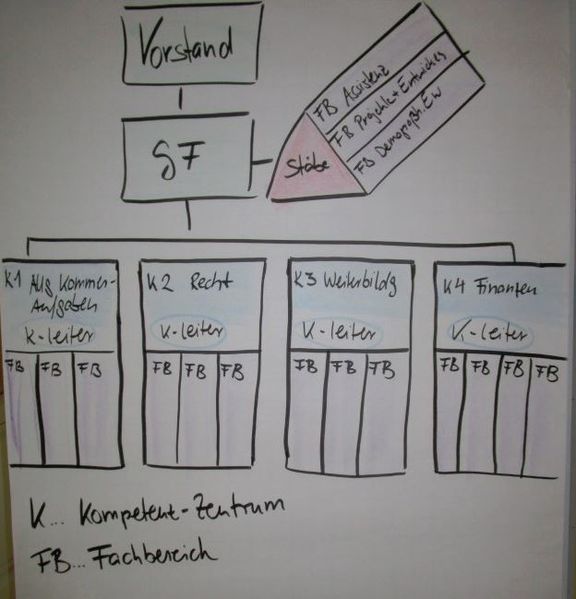 Vorstand
GF
Stäbe
FB Assistenz
FB Projekte + Entwickl
FB Demograph. Ew
K1 Allg Kammer-
Aufgaben
K-Leiter
FB FB FB
K2 Recht
K-Leiter
FB FB FB
K3 Weiterbildg
K-Leiter
FB FB FB
K4 Finanzen
K-Leiter
FB FB FB FB
K... Kompetenz-Zentrum
FB... Fachbereich